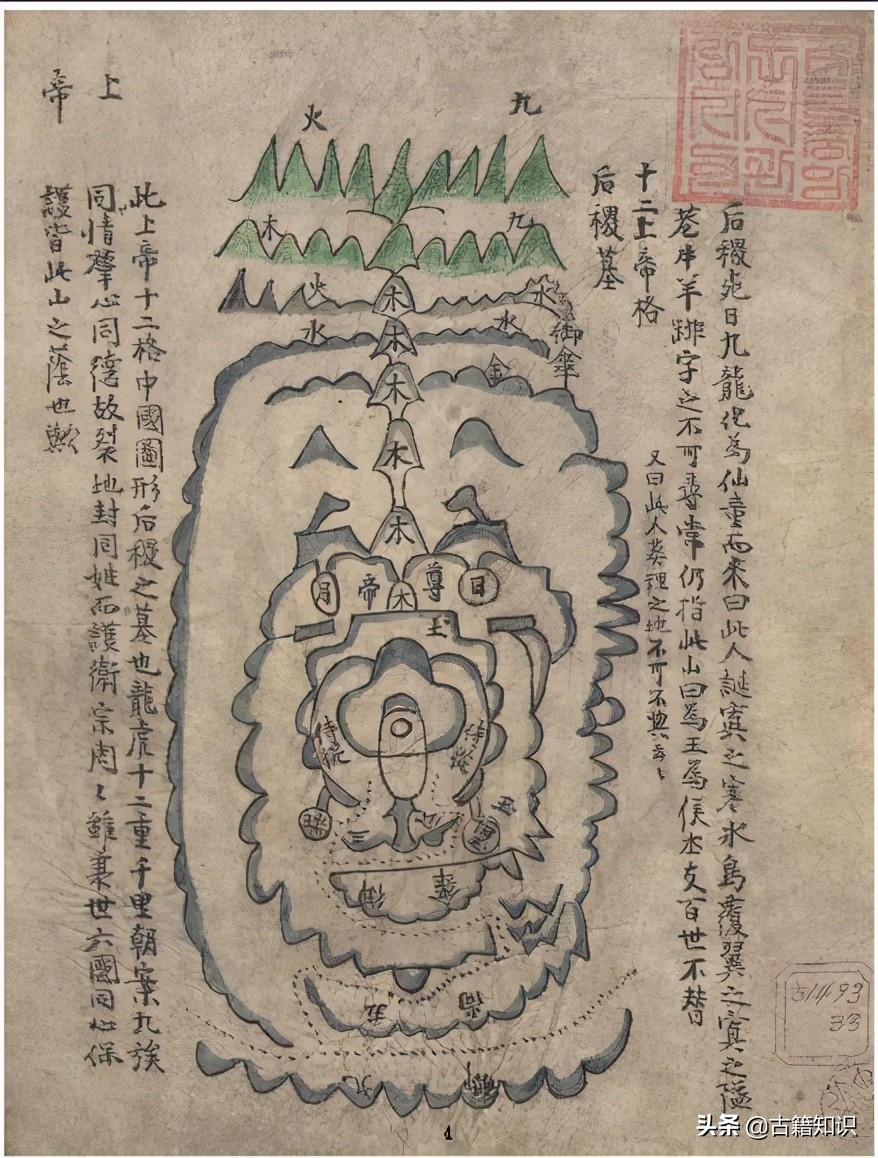 后稷死日九龍化為仙童而來曰此人誕寘之寒氷鳥覆翼之寘之隘
巷牛羊腓字之不可尋常仍指此山曰為王為侯本支百世不替
又曰此人葬理之地不可不典云云
十二上帝格
后稷墓
上
帝
此上帝十二格中國圖形后稷之墓也龍虎十二重千里朝案九族
同情群心同德故裂地封同姓而護衛宗周周雖衰世六國同心保
護皆此山之蔭也歟
九
火
九
木
火
木
水
御傘
水
木
水
木
金
木
木
日
尊
木
帝
月
王
侍從
侍從
三
御
五
九
古1493
33
1
头条 @古籍知识